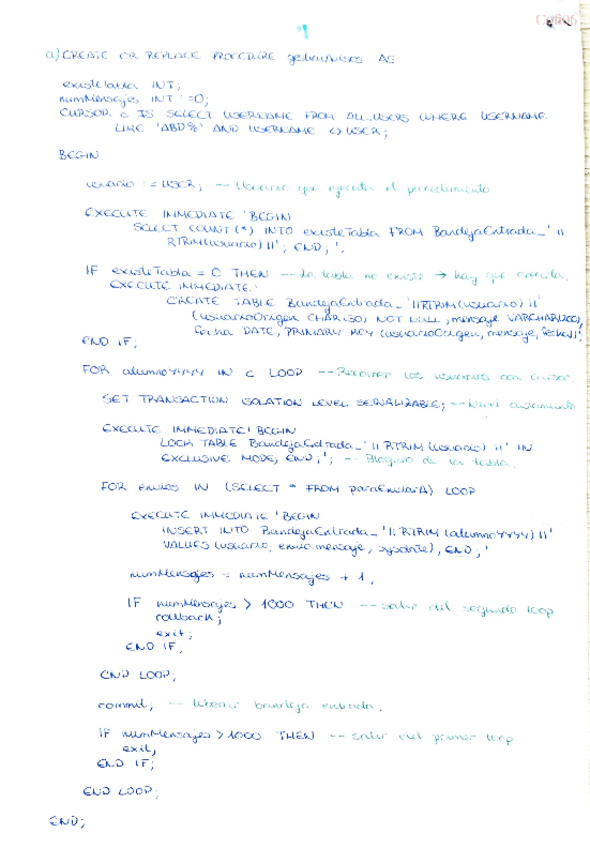 1
a) CREATE OR REPLACE PROCEDURE gestionAvisos AS
existeTabla INT;
numMensajes INT :=0;
CURSOR c IS SELECT USERNAME FROM ALL_USERS WHERE USERNAME
LIKE 'ABD%' AND USERNAME <> USER;
BEGIN
usuario := USER; -- Usuario que ejecuta el procedimiento
EXECUTE IMMEDIATE 'BEGIN
SELECT COUNT(*) INTO existeTabla FROM BandejaEntrada_' ||
RTRIM(usuario) ||'; END;';
IF existeTabla = 0 THEN -- La tabla no existe → hay que crearla.
EXECUTE IMMEDIATE '
CREATE TABLE BandejaEntrada_'||RTRIM(usuario)||'
(usuarioOrigen CHAR(30) NOT NULL, mensaje VARCHAR(200),
fecha DATE, PRIMARY KEY (usuarioOrigen, mensaje, fecha))'
END IF;
FOR alumnoYYYY IN c LOOP -- Recorrer los usuarios con cursor.
SET TRANSACTION ISOLATION LEVEL SERIALIZABLE; -- Nivel aislamiento
EXECUTE IMMEDIATE 'BEGIN
LOCK TABLE BandejaEntrada_' || RTRIM (usuario) ||' IN
EXCLUSIVE MODE; END;'; -- Bloqueo de la tabla.
FOR envios IN (SELECT * FROM paraEnviarA) LOOP
EXECUTE IMMEDIATE 'BEGIN
INSERT INTO BandejaEntrada_'|| RTRIM (alumnoYYYY) ||'
VALUES (usuario, envio.mensaje, sysdate); END;'
numMensajes = numMensajes + 1;
IF numMensajes > 1000 THEN -- salir del segundo loop
rollback;
exit;
END IF;
END LOOP;
commit; -- liberar bandeja entrada.
IF numMensajes > 1000 THEN -- salir del primer loop
exit;
END IF;
END LOOP;
END;